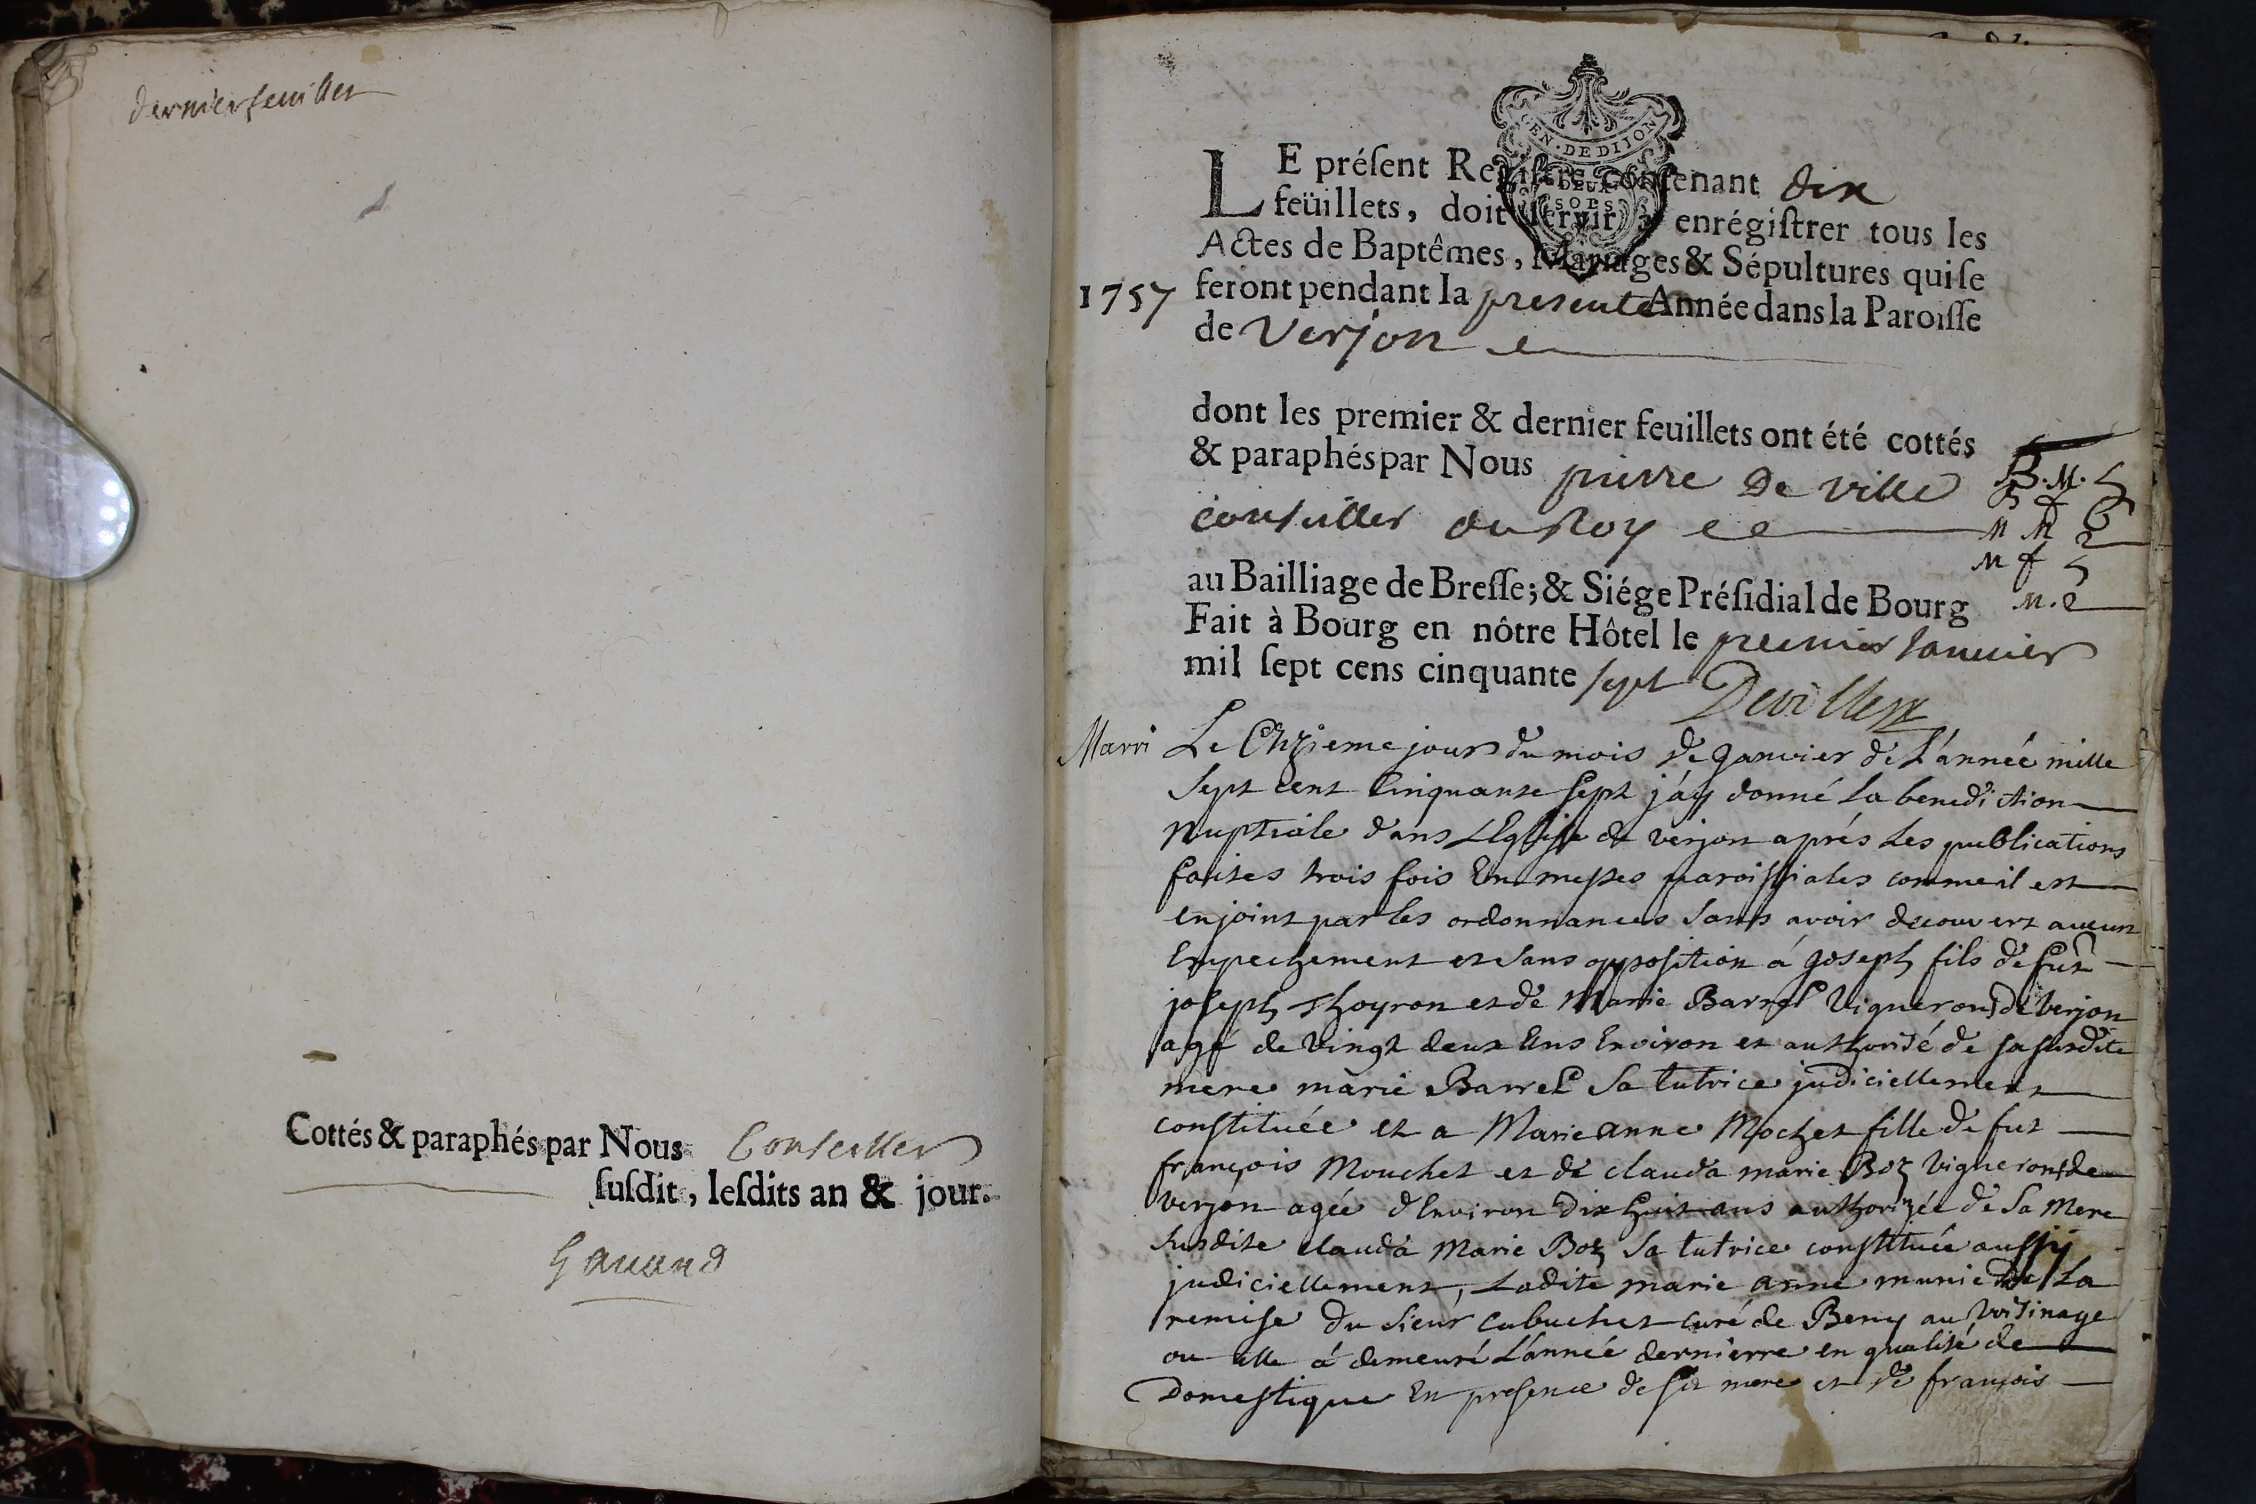 dernier feuillet
Cottés & paraphés par Nous Conseiller
ſuſdit, leſdits an & jour.
Gauand
GEN. DE DIJON
DEUX
SOLS
LE préſent Regiſtre contenant dix
feüillets, doit ſervir à enrégiſtrer tous les
Actes de Baptêmes, Mariages & Sépultures qui ſe
1757 feront pendant la presente Année dans la Paroiſſe
de Verjon
dont les premier & dernier feuillets ont été cottés
& paraphés par Nous pierre De ville
conseiller du Roy
B. M. 5
M M 2
M f 5
M. 2
au Bailliage de Breſſe; & Siége Préſidial de Bourg
Fait à Bourg en nôtre Hôtel le premier Januier
mil ſept cens cinquante sept
Marri Le Onzieme jour du mois de Janvier de L'année mille
sept cent Cinquante sept j'áy donné la benediction
nuptiale dans L'Eglise de verjon aprés les publications
faites trois fois En messes paroissiales comme il est
enjoint par les ordonnances sans avoir decouvert aucun
Empechement et sans opposition á Joseph fils de fut
joseph Thoyron et de Marie Barrel Vignerons de Verjon
agé de Vingt deux Ans Environ et authorisé de sa susdite
mere marie Barrel sa tutrice judiciellement
constituée et a Marie anne Mochet fille de fut
françois Mouchet et de clauda marie Boz vignerons de
verjon agée d'Environ Dix huit ans authorizée de sa Mere
susdite clauda Marie Boz sa tutrice constituée aussy
judiciellement, Ladite marie anne munie de La
remise du sieur Cabuchet curé de Beny au Voisinage
ou elle á demeuré L'année dernierre en qualité de
Domestique En presence de sa mere et de françois